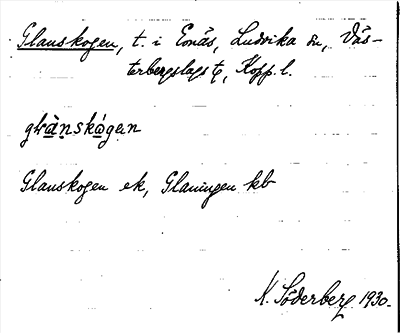 Glanskogen, t. i Evnäs, Ludvika sn, Väs-
terbergslags tg, Kopp. l.
glànskógen
Glanskogen ek, Glaningen kb
K. Söderberg 1930.